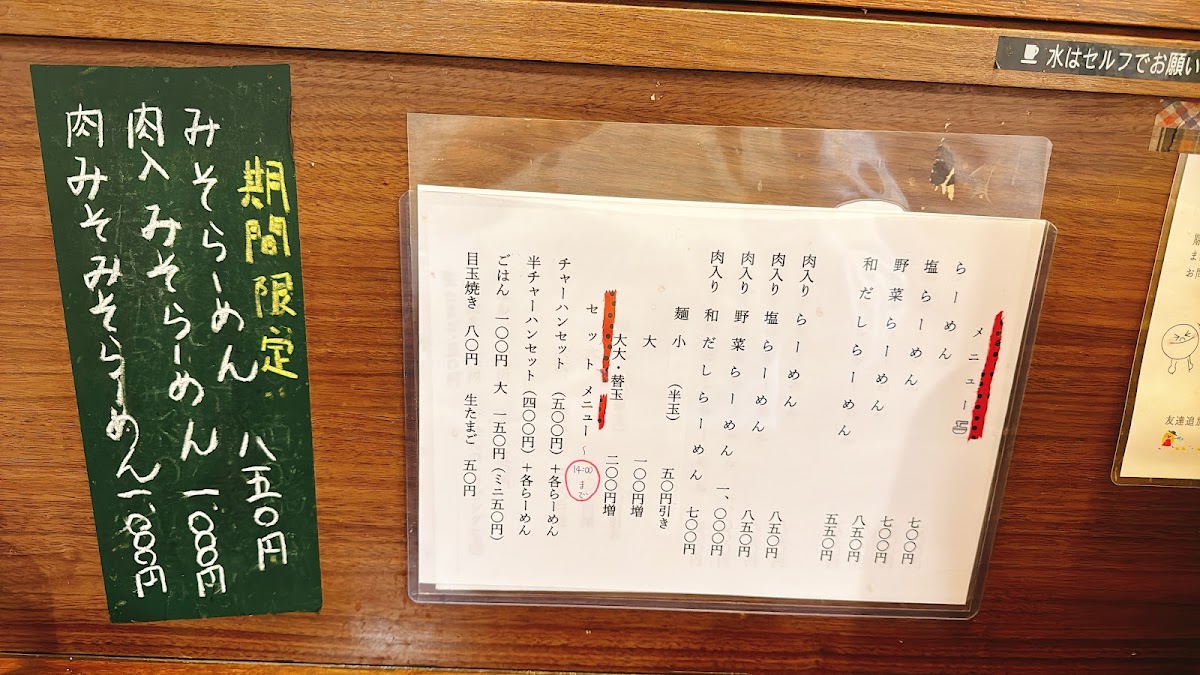 期間限定
みそらーめん 八五〇円
肉入みそらーめん 一、〇〇〇円
肉みそみそらーめん 一、〇〇〇円
水はセルフでお願い
メニュー
らーめん 七〇〇円
塩らーめん 七〇〇円
野菜らーめん 八五〇円
和だしらーめん 五五〇円
肉入りらーめん 八五〇円
肉入り塩らーめん 八五〇円
肉入り野菜らーめん 一、〇〇〇円
肉入り和だしらーめん 七〇〇円
麺小（半玉） 五〇円引き
大 一〇〇円増
大大・替玉 二〇〇円増
セットメニュー～ 14:00まで
チャーハンセット（五〇〇円）＋各らーめん
半チャーハンセット（四〇〇円）＋各らーめん
ごはん 一〇〇円 大 一五〇円（ミニ五〇円）
目玉焼き 八〇円 生たまご 五〇円
友達追加